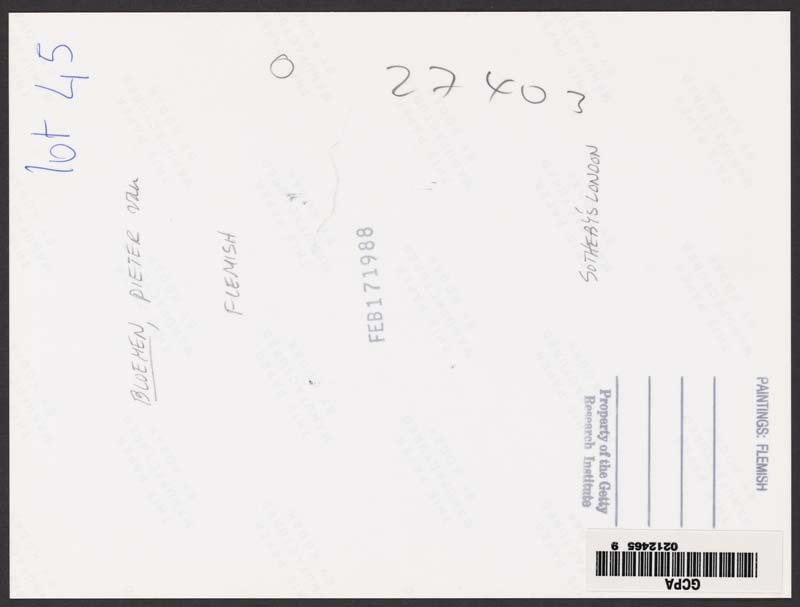 lot 45
O
27403
BLOEMEN, PIETER van
FLEMISH
FEB 17 1988
SOTHEBY'S LONDON
PAINTINGS: FLEMISH
Property of the Getty
Research Institute
GCPA
0212465 9